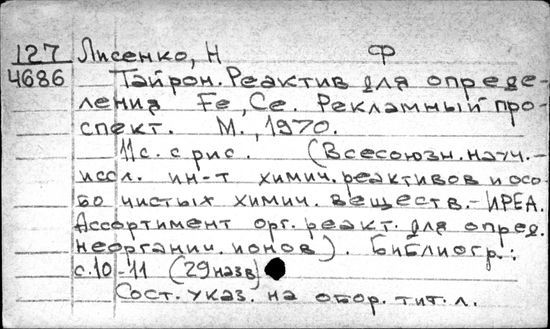 127 Лисенко, Н Ф
4686 Тайрон. Реактив для опреде-
ления Fe, Ce. Рекламный про-
спект. М., 1970.
11с. с рис. (Всесоюзн. науч.-
иссл. ин-т химич. реактивов и осо
бо чистых химич. веществ.- ИРЕА.
Ассортимент орг. реакт. для опред.
неорганич. ионов). Библиогр.:
с. 10-11 (29 назв)
Сост. указ. на обор. тит. л.